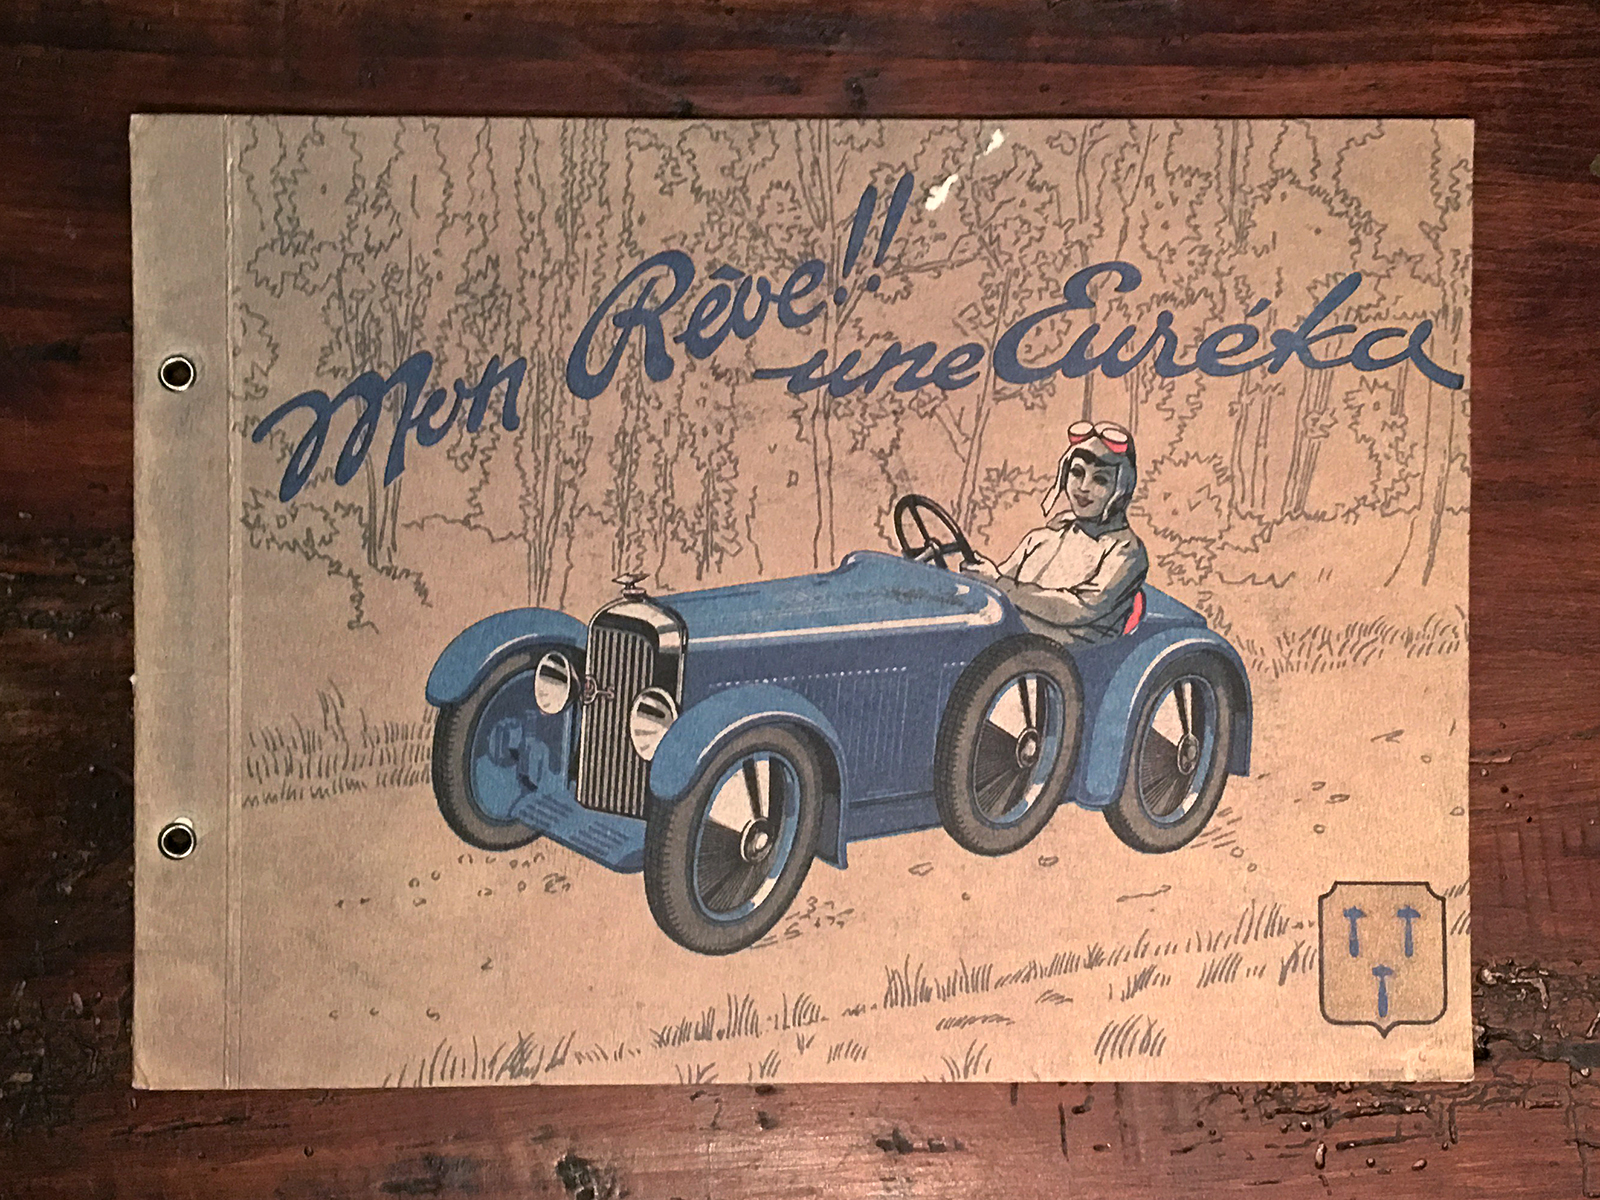 Mon Rêve!!
une Euréka